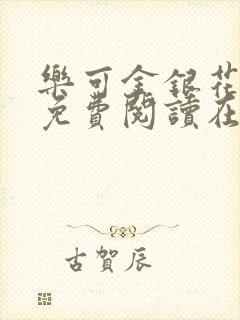 樂可金銀花
免費閱讀在
古賀辰